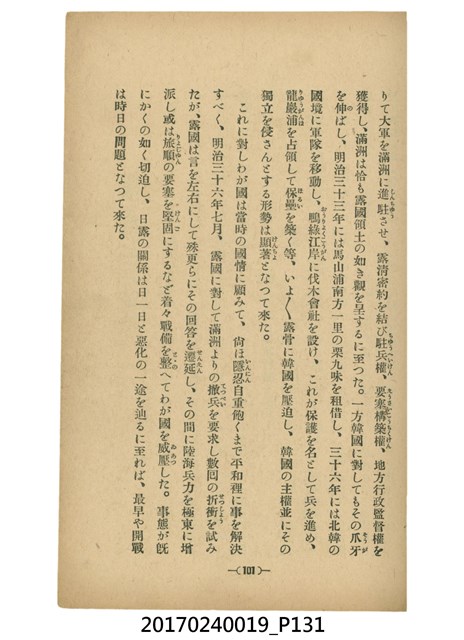 りて大軍を滿洲に進駐させ、露淸密約を結び駐兵權、要塞構築權、地方行政監督權を
獲得し、滿洲は恰も露國領土の如き觀を呈するに至つた。一方韓國に對してもその爪牙
を伸ばし、明治三十三年には馬山浦南方一里の栗九味を租借し、三十六年には北韓の
國境に軍隊を移動し、鴨綠江岸に伐木會社を設け、これが保護を名として兵を進め、
龍巖浦を占領して保壘を築く等、いよ〳〵露骨に韓國を壓迫し、韓國の主權並にその
獨立を侵さんとする形勢は顯著となつて來た。
これに對しわが國は當時の國情に顧みて、尙ほ隱忍自重飽くまで平和裡に事を解決
すべく、明治三十六年七月、露國に對して滿洲よりの撤兵を要求し數囘の折衝を試み
たが、露國は言を左右にして殊更らにその回答を遷延し、その間に陸海兵力を極東に增
派し或は旅順の要塞を堅固にするなど着々戰備を整へてわが國を威壓した。事態が旣
にかくの如く切迫し、日露の關係は日一日と惡化の一途を辿るに至れば、最早や開戰
は時日の問題となつて來た。
—( 101 )—
20170240019_P131